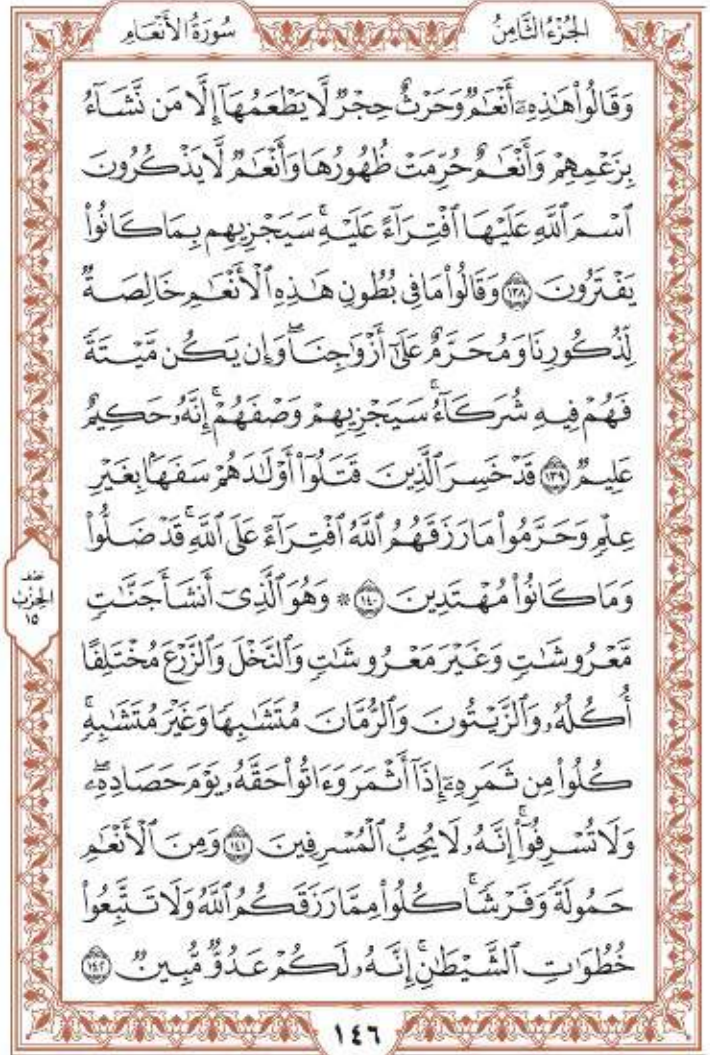 الجُزْءُ الثَّامِنُ
سُورَةُ الأَنْعَامِ
وَقَالُوا۟ هَـٰذِهِۦٓ أَنْعَـٰمٌ وَحَرْثٌ حِجْرٌ لَّا يَطْعَمُهَآ إِلَّا مَن نَّشَآءُ
بِزَعْمِهِمْ وَأَنْعَـٰمٌ حُرِّمَتْ ظُهُورُهَا وَأَنْعَـٰمٌ لَّا يَذْكُرُونَ
ٱسْمَ ٱللَّهِ عَلَيْهَا ٱفْتِرَآءً عَلَيْهِ ۚ سَيَجْزِيهِم بِمَا كَانُوا۟
يَفْتَرُونَ ١٣٨ وَقَالُوا۟ مَا فِى بُطُونِ هَـٰذِهِ ٱلْأَنْعَـٰمِ خَالِصَةٌ
لِّذُكُورِنَا وَمُحَرَّمٌ عَلَىٰٓ أَزْوَٰجِنَا ۖ وَإِن يَكُن مَّيْتَةً
فَهُمْ فِيهِ شُرَكَآءُ ۚ سَيَجْزِيهِمْ وَصْفَهُمْ ۚ إِنَّهُۥ حَكِيمٌ
عَلِيمٌ ١٣٩ قَدْ خَسِرَ ٱلَّذِينَ قَتَلُوٓا۟ أَوْلَـٰدَهُمْ سَفَهًۢا بِغَيْرِ
عِلْمٍ وَحَرَّمُوا۟ مَا رَزَقَهُمُ ٱللَّهُ ٱفْتِرَآءً عَلَى ٱللَّهِ ۚ قَدْ ضَلُّوا۟
وَمَا كَانُوا۟ مُهْتَدِينَ ١٤٠ ۞ وَهُوَ ٱلَّذِىٓ أَنشَأَ جَنَّـٰتٍ
مَّعْرُوشَـٰتٍ وَغَيْرَ مَعْرُوشَـٰتٍ وَٱلنَّخْلَ وَٱلزَّرْعَ مُخْتَلِفًا
أُكُلُهُۥ وَٱلزَّيْتُونَ وَٱلرُّمَّانَ مُتَشَـٰبِهًا وَغَيْرَ مُتَشَـٰبِهٍ ۚ
كُلُوا۟ مِن ثَمَرِهِۦٓ إِذَآ أَثْمَرَ وَءَاتُوا۟ حَقَّهُۥ يَوْمَ حَصَادِهِۦ ۖ
وَلَا تُسْرِفُوٓا۟ ۚ إِنَّهُۥ لَا يُحِبُّ ٱلْمُسْرِفِينَ ١٤١ وَمِنَ ٱلْأَنْعَـٰمِ
حَمُولَةً وَفَرْشًا ۚ كُلُوا۟ مِمَّا رَزَقَكُمُ ٱللَّهُ وَلَا تَتَّبِعُوا۟
خُطُوَٰتِ ٱلشَّيْطَـٰنِ ۚ إِنَّهُۥ لَكُمْ عَدُوٌّ مُّبِينٌ ١٤٢
نصف
الحِزْب
١٥
١٤٦